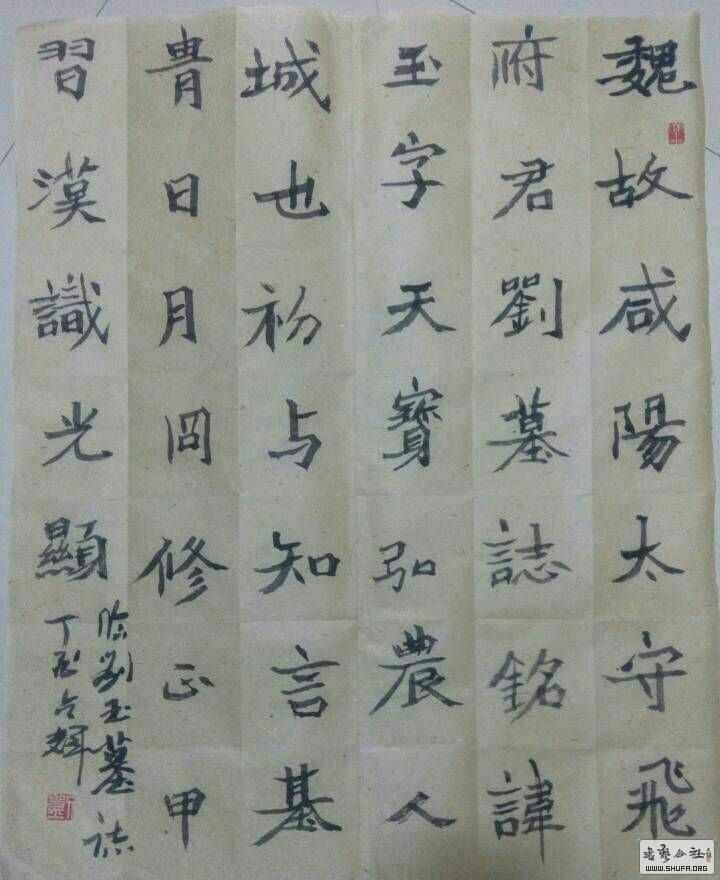 魏故咸陽太守飛
府君劉墓誌銘諱
玉字天寶弘農人
城也初与知言基
胄日月冏修正甲
習漢識光顯
臨劉玉墓誌
丁酉
WWW.SHUFA.ORG